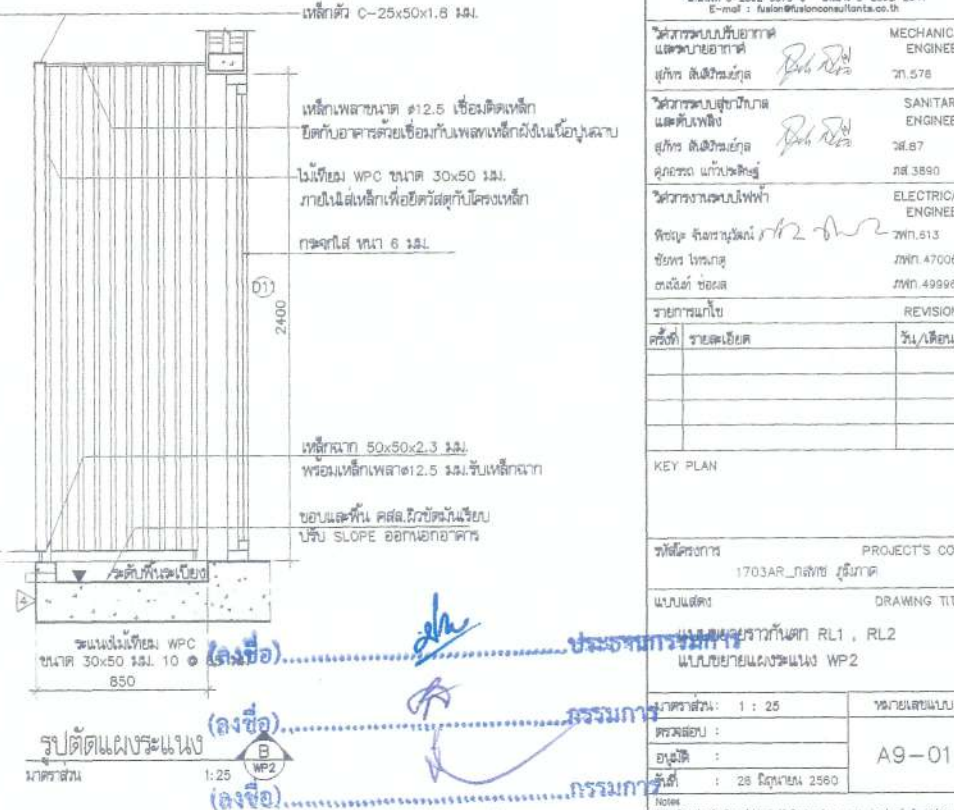 เหล็กตัว C-25x50x1.6 มม.
เหล็กเพลาขนาด ø12.5 เชื่อมติดเหล็ก
ยึดกับอาคารด้วยเชื่อมกับเพลทเหล็กฝังในเนื้อปูนฉาบ
ไม้เทียม WPC ขนาด 30x50 มม.
ภายในใส่เหล็กเพื่อยึดวัสดุกับโครงเหล็ก
กระจกใส หนา 6 มม.
D11
2400
เหล็กฉาก 50x50x2.3 มม.
พร้อมเหล็กเพลาø12.5 มม.รับเหล็กฉาก
ขอบและพื้น คสล.ผิวขัดมันเรียบ
ปรับ SLOPE ออกนอกอาคาร
ระดับพื้นระเบียง
4
ระแนงไม้เทียม WPC
ขนาด 30x50 มม. 10 @
850
รูปตัดแผงระแนง
มาตราส่วน 1:25
B
WP2
(ลงชื่อ) ประธานกรรมการ
(ลงชื่อ) กรรมการ
(ลงชื่อ) กรรมการ
E-mail : fusion@fusionconsultants.co.th
วิศวกรระบบปรับอากาศ MECHANIC
และระบายอากาศ ENGINEE
สุภัทร วก.578
วิศวกรระบบสุขาภิบาล SANITAR
และดับเพลิง ENGINEE
สุภัทร วส.87
ภส.3890
วิศวกรงานระบบไฟฟ้า ELECTRICA
ENGINEE
วฟก.613
ภฟก.47006
ภฟก.49996
รายการแก้ไข REVISION
ครั้งที่ รายละเอียด วัน/เดือน
KEY PLAN
รหัสโครงการ PROJECT'S CO
1703AR_กสทช ภูมิภาค
แบบแสดง DRAWING TIT
แบบขยายราวกันตก RL1 , RL2
แบบขยายแผงระแนง WP2
มาตราส่วน: 1 : 25 หมายเลขแบบ
ตรวจสอบ :
อนุมัติ : A9-01
วันที่ : 26 มิถุนายน 2560
Notes